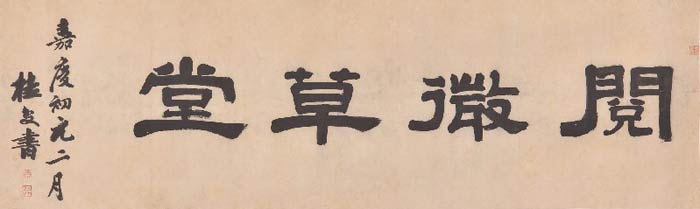 閱微草堂
嘉慶初元二月
桂馥書